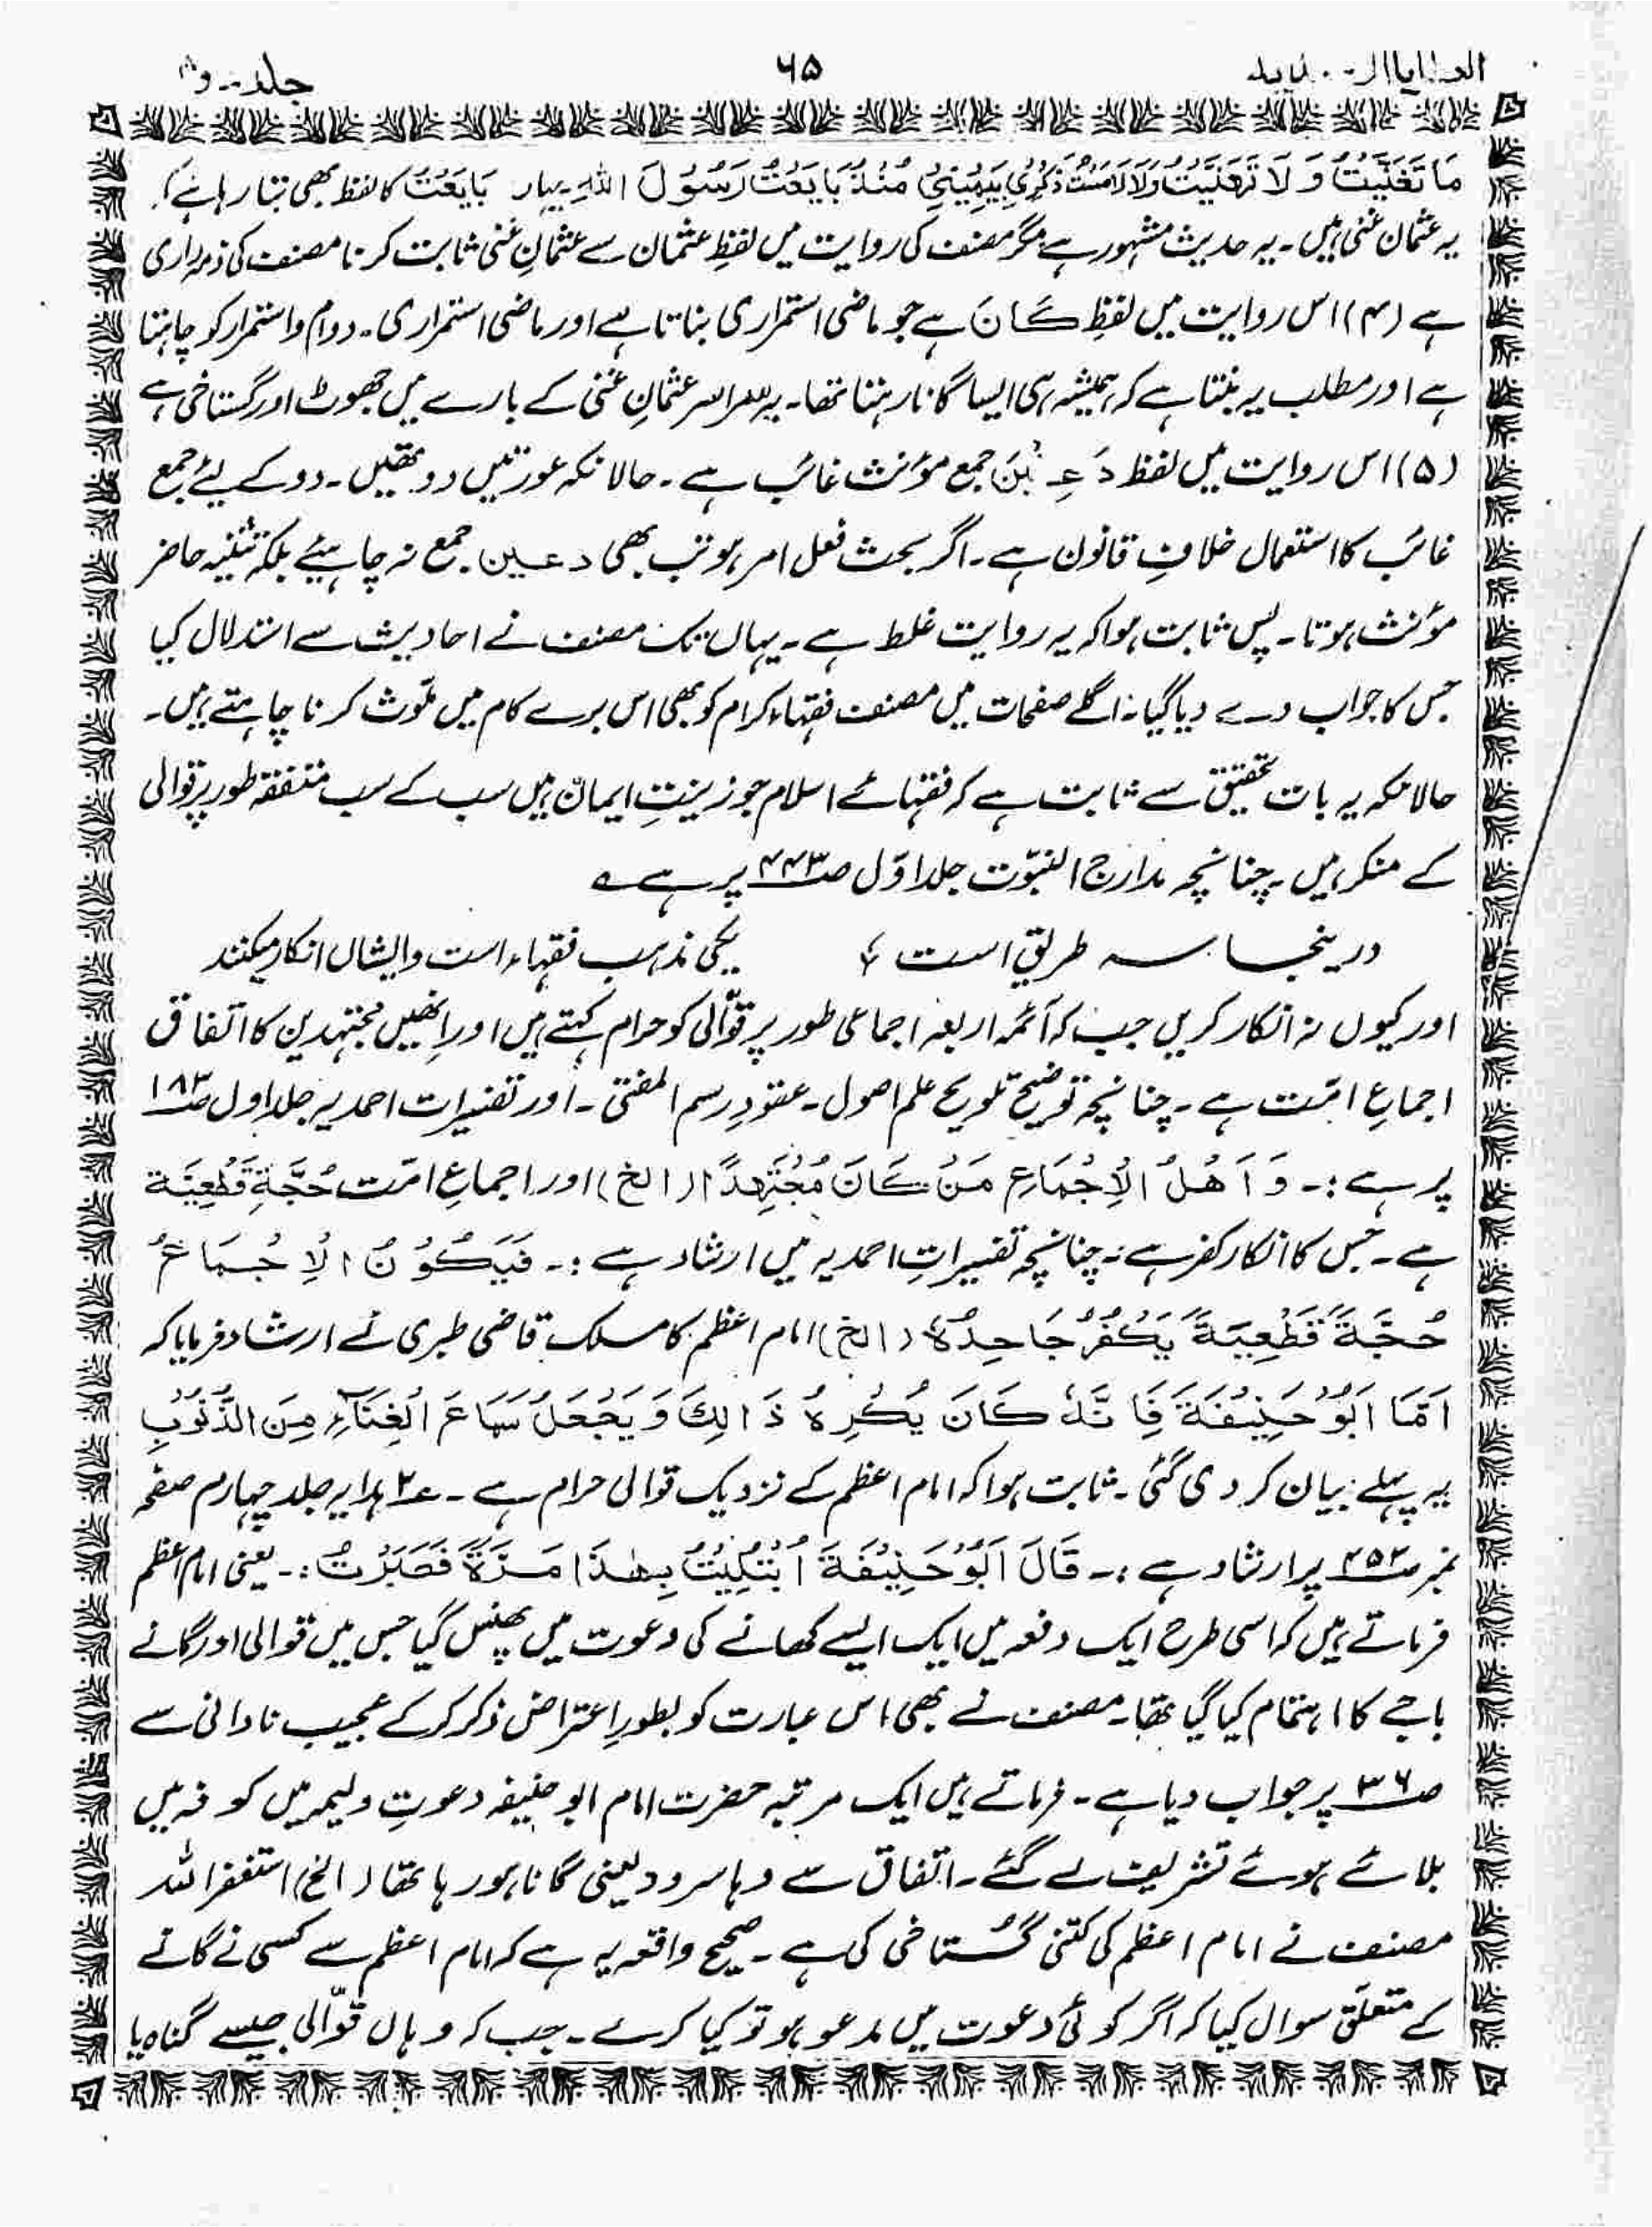 ۶۵
مَا تَغَنَّيْتُ وَ لَا تَمَنَّيْتُ وَلَا لَامَسْتُ ذَكَرِيْ بِيَمِيْنِيْ مُنْذُ بَايَعْتُ رَسُوْلَ اللهِ یہاں بَايَعْتُ کا لفظ بھی بتا رہا ہے کہ
یہ عثمان غنی ہیں۔ یہ حدیث مشہور ہے مگر مصنف کی روایت میں لفظِ عثمان سے عثمانِ غنی ثابت کرنا مصنف کی ذمہ داری
ہے (۴) اس روایت میں لفظِ كَانَ ہے جو ماضی استمراری بناتا ہے اور ماضی استمراری۔ دوام و استمرار کو چاہتا
ہے اور مطلب یہ بنتا ہے کہ ہمیشہ ہی ایسا گانا رہتا تھا۔ یہ سراسر عثمانِ غنی کے بارے میں جھوٹ اور گستاخی ہے
(۵) اس روایت میں لفظ دَعِیْنَ جمع مؤنث غائب ہے۔ حالانکہ عورتیں دو تھیں۔ دو کے لیئے جمع
غائب کا استعمال خلافِ قانون ہے۔ اگر بحث فعل امر ہو تب بھی دعین جمع نہ چاہیئے بلکہ تثنیہ حاضر
مؤنث ہوتا۔ پس ثابت ہوا کہ یہ روایت غلط ہے۔ یہاں تک مصنف نے احادیث سے استدلال کیا
جس کا جواب دے دیا گیا۔ اگلے صفحات میں مصنف فقہاء کرام کو بھی اس برے کام میں ملوّث کرنا چاہتے ہیں۔
حالانکہ یہ بات تحقیق سے ثابت ہے کہ فقہائے اسلام جو زینتِ ایمان ہیں سب کے سب متفقہ طور پر قوالی
کے منکر ہیں۔ چنانچہ مدارج النبوّت جلد اوّل صـ۴۴۳ پر ہے
درینجا سہ طریق است یکی مذہب فقہاء است و ایشاں انکار میکنند
اور کیوں نہ انکار کریں جب کہ آئمہ اربعہ اجماعی طور پر قوّالی کو حرام کہتے ہیں اور انھیں مجتہدین کا اتفاق
اجماعِ امّت ہے۔ چنانچہ توضیح تلویح علم اصول۔ عقودِ رسم المفتی۔ اور تفسیرات احمدیہ جلد اول صـ۱۸۳
پر ہے:۔ وَ اَهْلُ الْاِجْمَاعِ مَنْ كَانَ مُجْتَهِدًا (الخ) اور اجماعِ امّت حُجَّةٌ قَطْعِيَّة
ہے۔ جس کا انکار کفر ہے۔ چنانچہ تفسیراتِ احمدیہ میں ارشاد ہے:۔ فَيَكُوْنُ الْاِجْمَاعُ
حُجَّةً قَطْعِيَّةً يَكْفُرُ جَاحِدُهٗ (الخ) امام اعظم کا مسلک قاضی طبری نے ارشاد فرمایا کہ
اَمَّا اَبُوْ حَنِيْفَةَ فَاِنَّهٗ كَانَ يُكْرِهُ ذَالِكَ وَيَجْعَلُ سَمَاعَ الْغِنَآءِ مِنَ الذُّنُوْبِ
یہ پہلے بیان کر دی گئی۔ ثابت ہوا کہ امام اعظم کے نزدیک قوالی حرام ہے۔ عـ۲ ہدایہ جلد چہارم صفحہ
نمبر صـ۴۵۲ پر ارشاد ہے:۔ قَالَ اَبُوْ حَنِيْفَةَ اُبْتُلِيْتُ بِهٰذَا مَرَّةً فَصَبَرْتُ:۔ یعنی امام اعظم
فرماتے ہیں کہ اسی طرح ایک دفعہ میں ایک ایسے کھانے کی دعوت میں پھنس گیا جس میں قوالی اور گانے
باجے کا اہتمام کیا گیا تھا۔ مصنف نے بھی اس عبارت کو بطورِ اعتراض ذکر کر کے عجیب نادانی سے
صـ۳۶ پر جواب دیا ہے۔ فرماتے ہیں ایک مرتبہ حضرت امام ابو حنیفہ دعوتِ ولیمہ میں کوفہ میں
بلائے ہوئے تشریف لے گئے۔ اتفاق سے وہا سرود یعنی گانا ہو رہا تھا (الخ) استغفر اللہ
مصنف نے امام اعظم کی کتنی گُستاخی کی ہے۔ صحیح واقعہ یہ ہے کہ امام اعظم سے کسی نے گانے
کے متعلّق سوال کیا کہ اگر کوئی دعوت میں مدعو ہو تو کیا کرے۔ جب کہ وہاں قوّالی جیسے گناہ یا